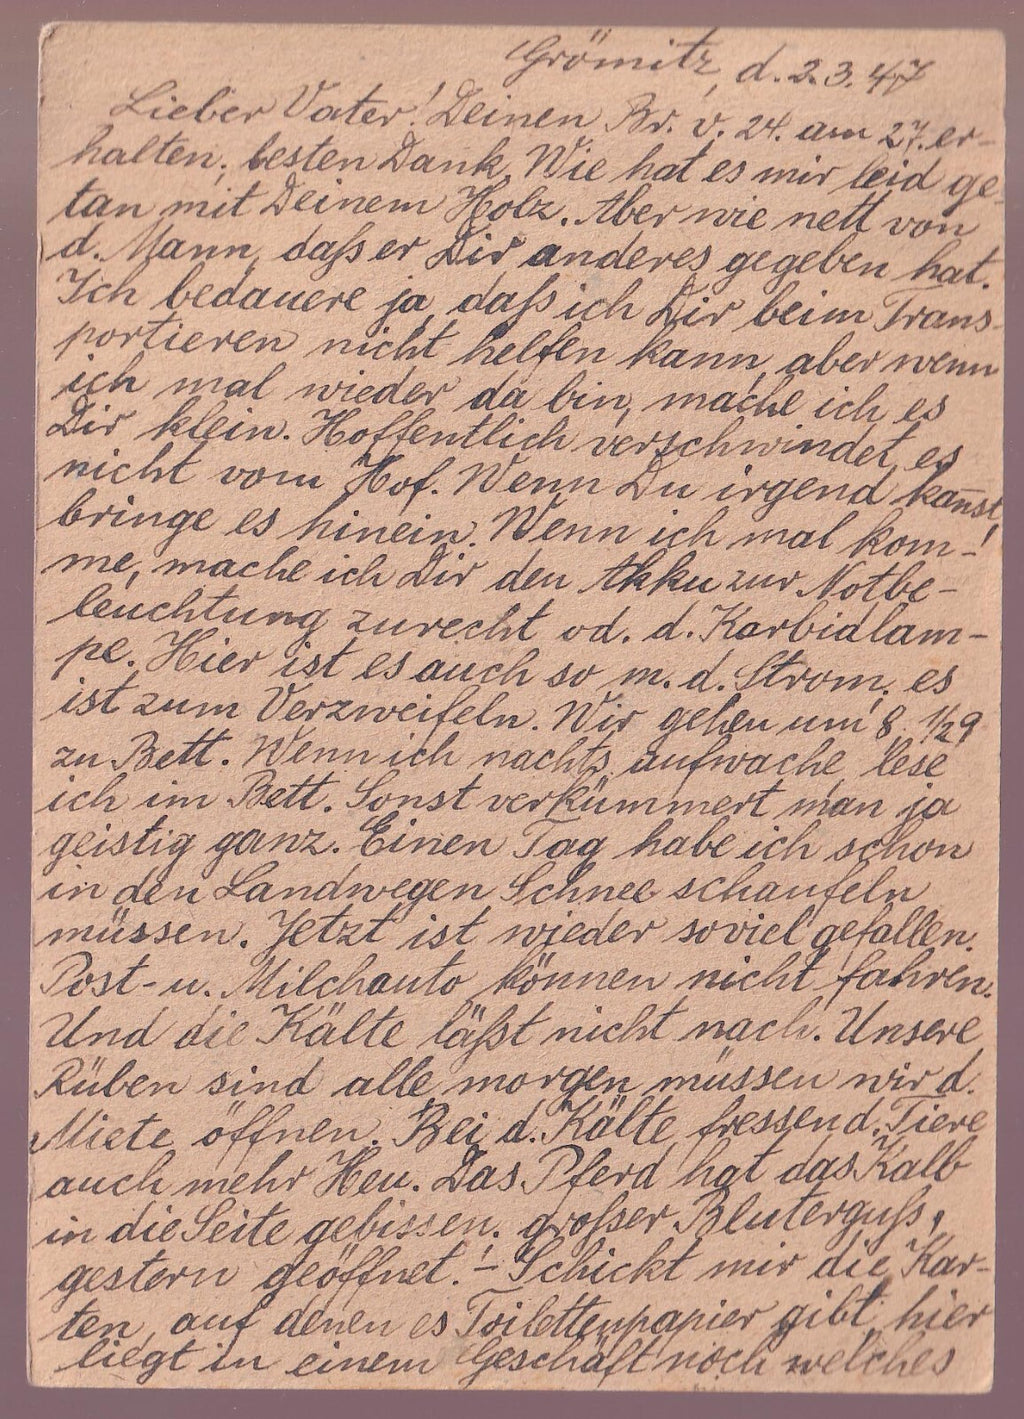 Grömitz, d. 2.3.47
Lieber Vater! Deinen Br. v. 24. am 27. er-
halten, besten Dank. Wie hat es mir leid ge-
tan mit Deinem Holz. Aber wie nett von
d. Mann, daß er Dir anderes gegeben hat.
Ich bedauere ja, daß ich Dir beim Trans-
portieren nicht helfen kann, aber wenn
ich mal wieder da bin, mache ich es
Dir klein. Hoffentlich verschwindet es
nicht vom Hof. Wenn Du irgend kannst,
bringe es hinein! Wenn ich mal kom-
me, mache ich Dir den Akku zur Notbe-
leuchtung zurecht od. d. Karbidlam-
pe. Hier ist es auch so m. d. Strom, es
ist zum Verzweifeln. Wir gehen um 8, 1/2 9
zu Bett. Wenn ich nachts aufwache, lese
ich im Bett. Sonst verkümmert man ja
geistig ganz. Einen Tag habe ich schon
in den Landwegen Schnee schaufeln
müssen. Jetzt ist wieder soviel gefallen.
Post- u. Milchauto können nicht fahren.
Und die Kälte läßt nicht nach. Unsere
Rüben sind alle, morgen müssen wir d.
Miete öffnen. Bei d. Kälte fressen d. Tiere
auch mehr Heu. Das Pferd hat das Kalb
in die Seite gebissen, großer Bluterguß,
gestern geöffnet! - Schickt mir die Kar-
ten, auf denen es Toilettenpapier gibt, hier
liegt in einem Geschäft noch welches